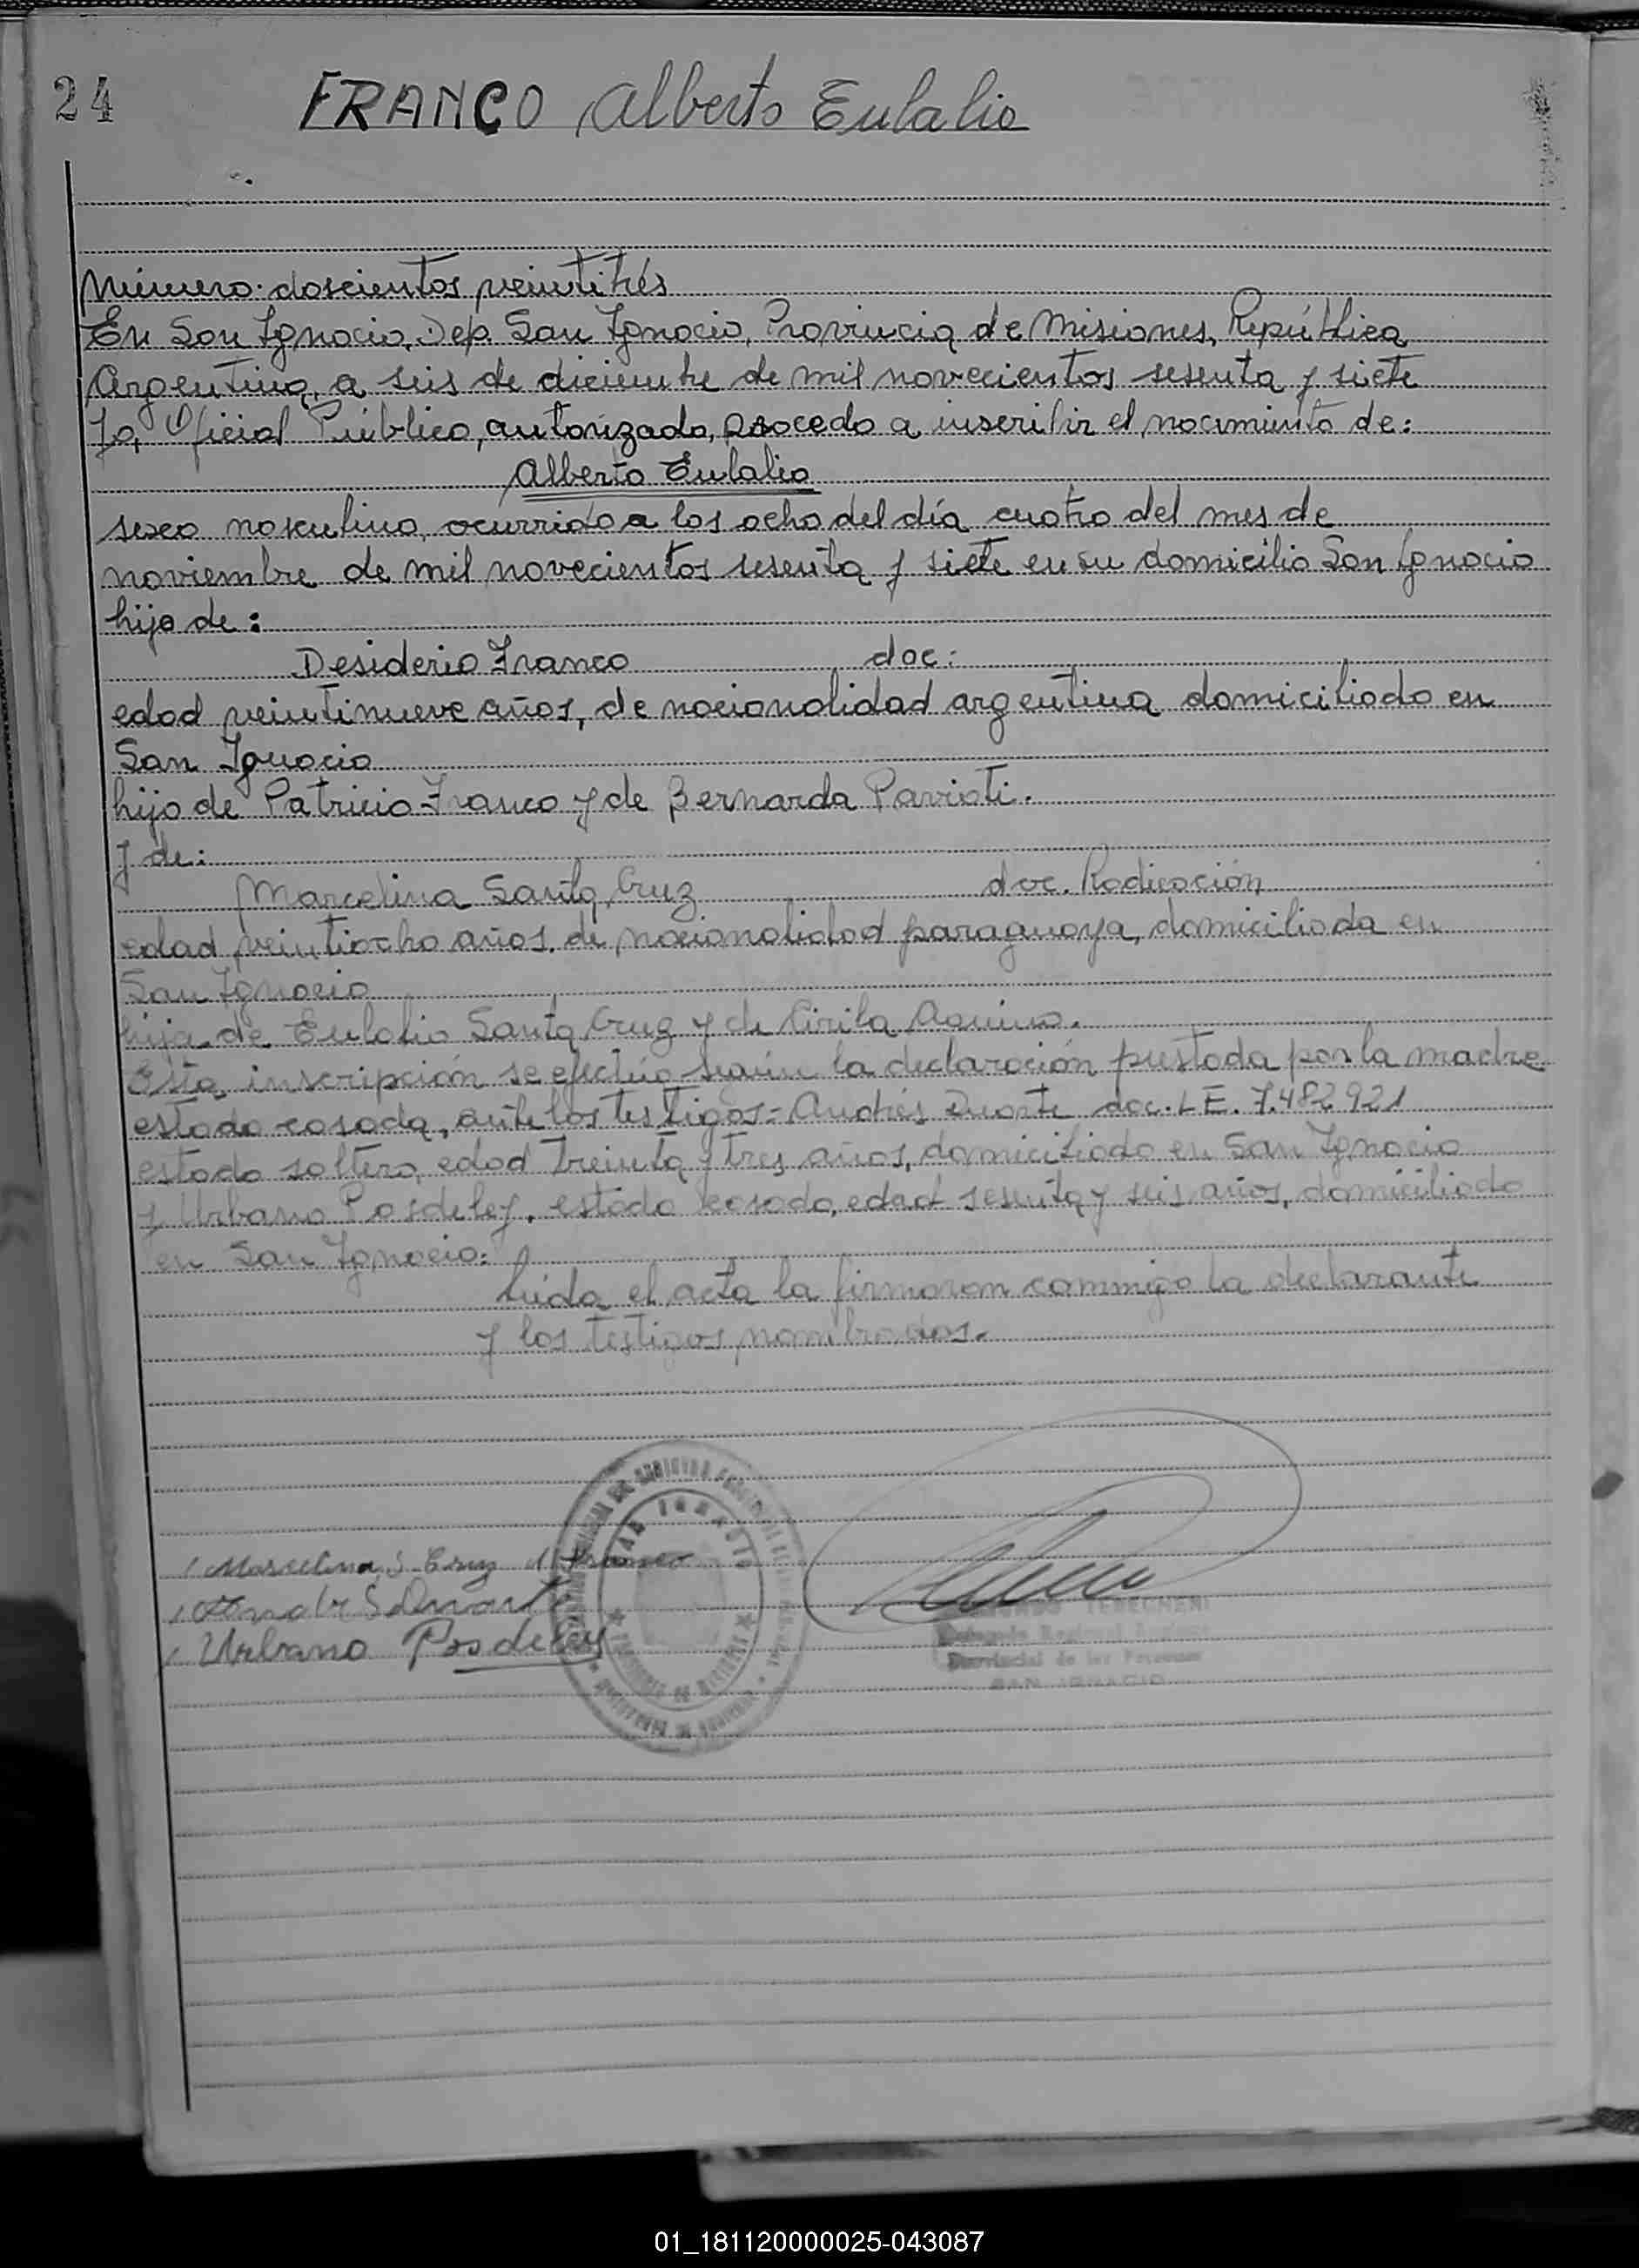 24
FRANCO Alberto Eulalio
Número doscientos veintitrés
En San Ignacio, Dep. San Ignacio, Provincia de Misiones, República
Argentina, a seis de diciembre de mil novecientos sesenta y siete
Yo, Oficial Público, autorizado, procedo a inscribir el nacimiento de:
Alberto Eulalio
sexo masculino, ocurrido a las ocho del día cuatro del mes de
noviembre de mil novecientos sesenta y siete en su domicilio San Ignacio
hijo de:
Desiderio Franco doc:
edad veintinueve años, de nacionalidad argentina domiciliado en
San Ignacio
hijo de Patricio Franco y de Bernarda Parrioti.
y de:
Marcelina Santa Cruz doc. Radicación
edad veintiocho años, de nacionalidad paraguaya, domiciliada en
San Ignacio
hija de Eulalio Santa Cruz y de Cirila Aquino.
Esta inscripción se efectúa según la declaración prestada por la madre
estado casada, ante los testigos:- Andrés Duarte doc. L E. 7.482 921
estado soltero, edad treinta y tres años, domiciliado en San Ignacio
y Urbano Posdeley, estado casado, edad sesenta y seis años, domiciliado
en San Ignacio:
Leída el acta la firmaron conmigo la declarante
y los testigos nombrados.-
Marcelina S. Cruz d Franco
Andr S Duarte
Urbano Posdeley
SAN IGNACIO
Delegado Regional Registro
Provincial de las Personas
SAN IGNACIO
01_181120000025-043087